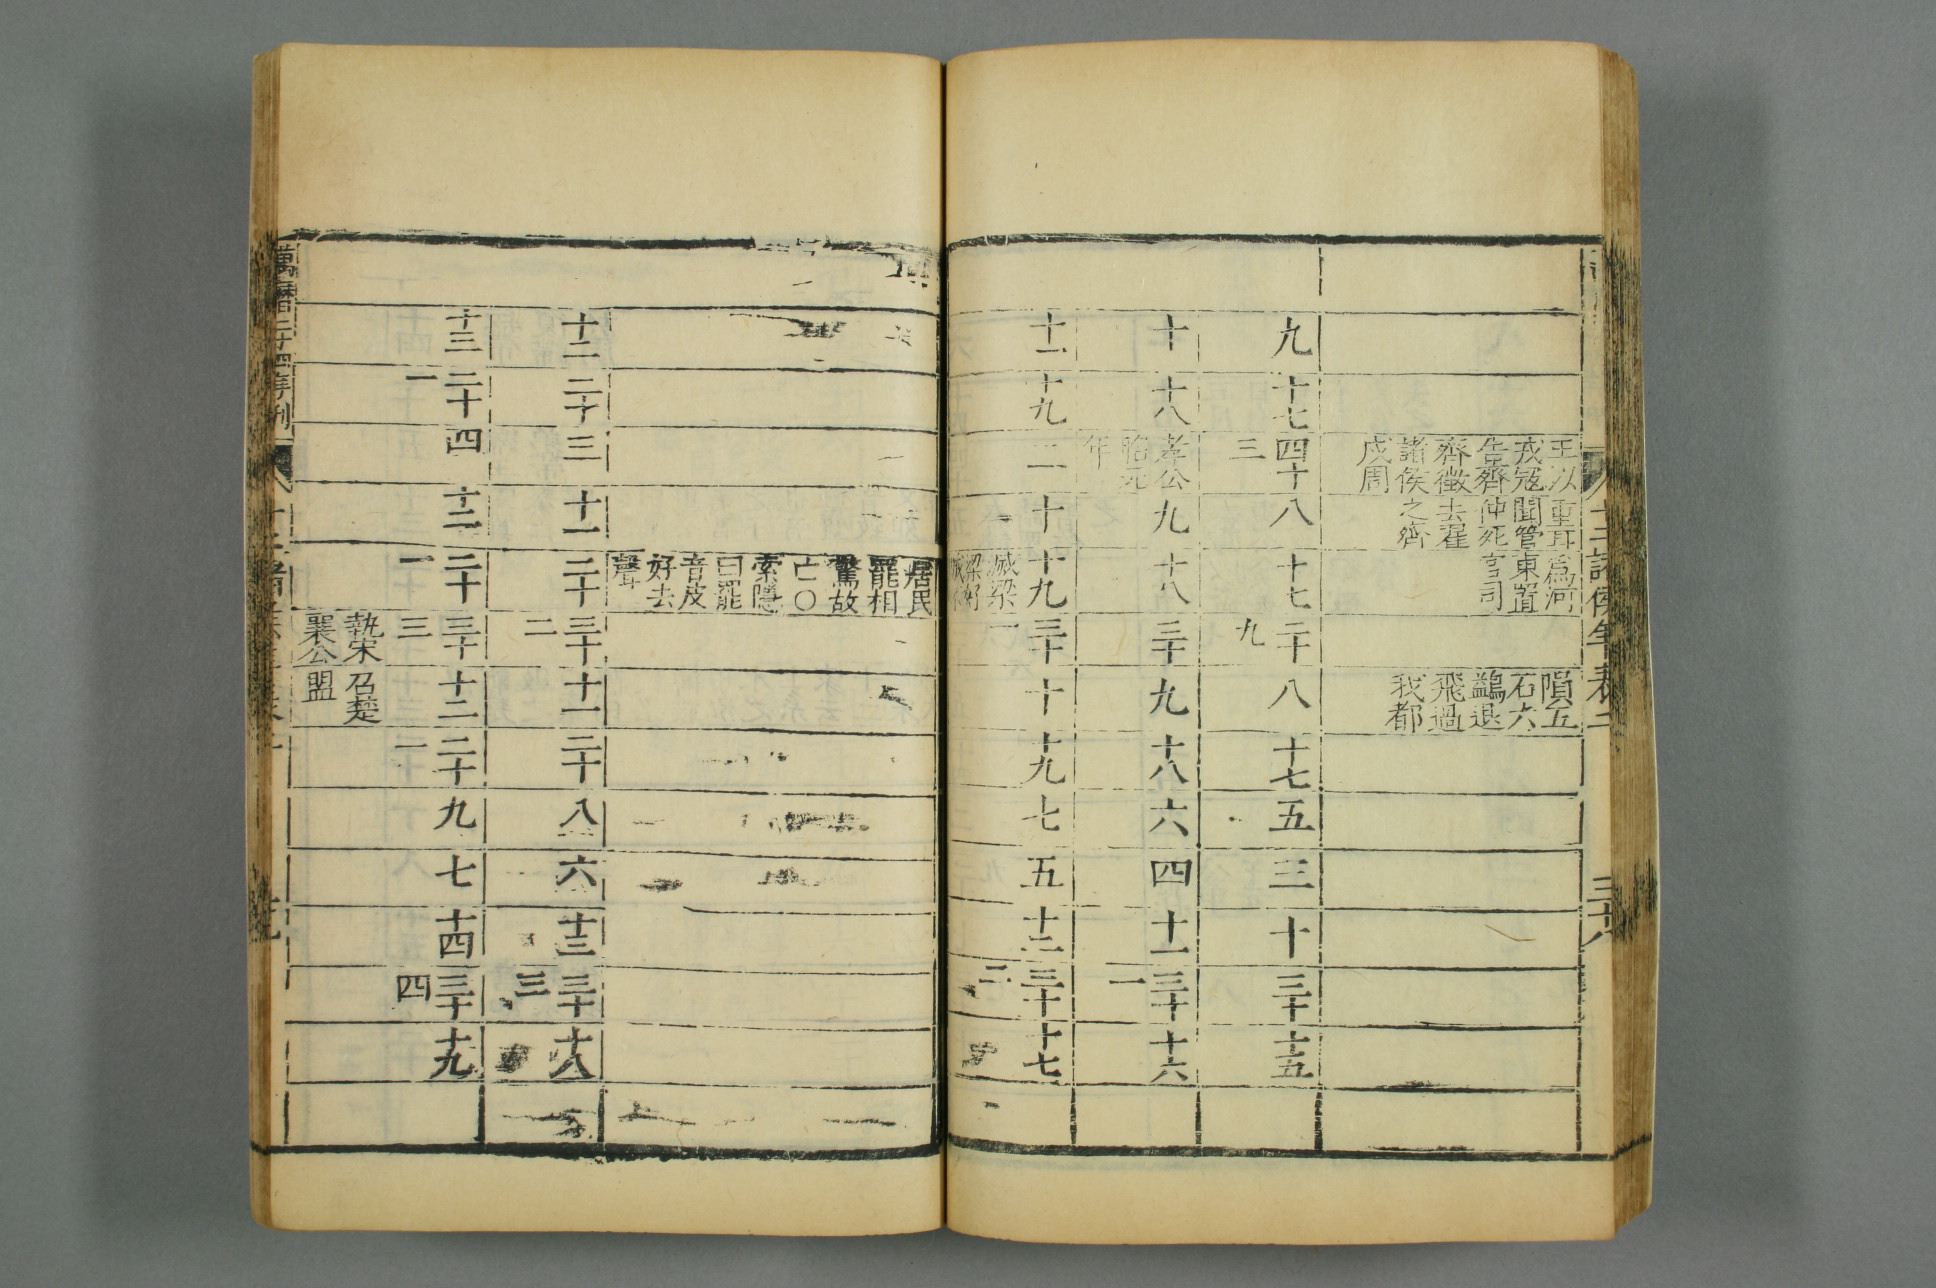 十二諸侯年表二
三十八
王以
戎寇
告齊
齊徵
諸侯
戍周
重耳
聞管
仲死
去翟
之齊
爲河
東置
官司
隕五
石六
鷁退
飛過
我都
九
十七
四十
三
八
十七
二十
九
八
十七
五
三
十
三十
十五
十
十八
孝公
昭元
年
九
十八
三十
九
十八
六
四
十一
三十
一
十六
十一
十九
二
十
十九
滅梁
梁好
城
三十
一
十
十九
七
五
十二
三十
二
十七
居民
罷相
驚故
亡○
索隱
曰罷
音皮
好去
聲
十二
二十
三
十一
二十
三十
二
十一
二十
八
六
十三
三十
三
十八
十三
二十
一
四
十二
二十
一
三十
三
執宋
襄公
十二
召楚
盟
二十
一
九
七
十四
三十
四
十九
萬曆二十四年刊